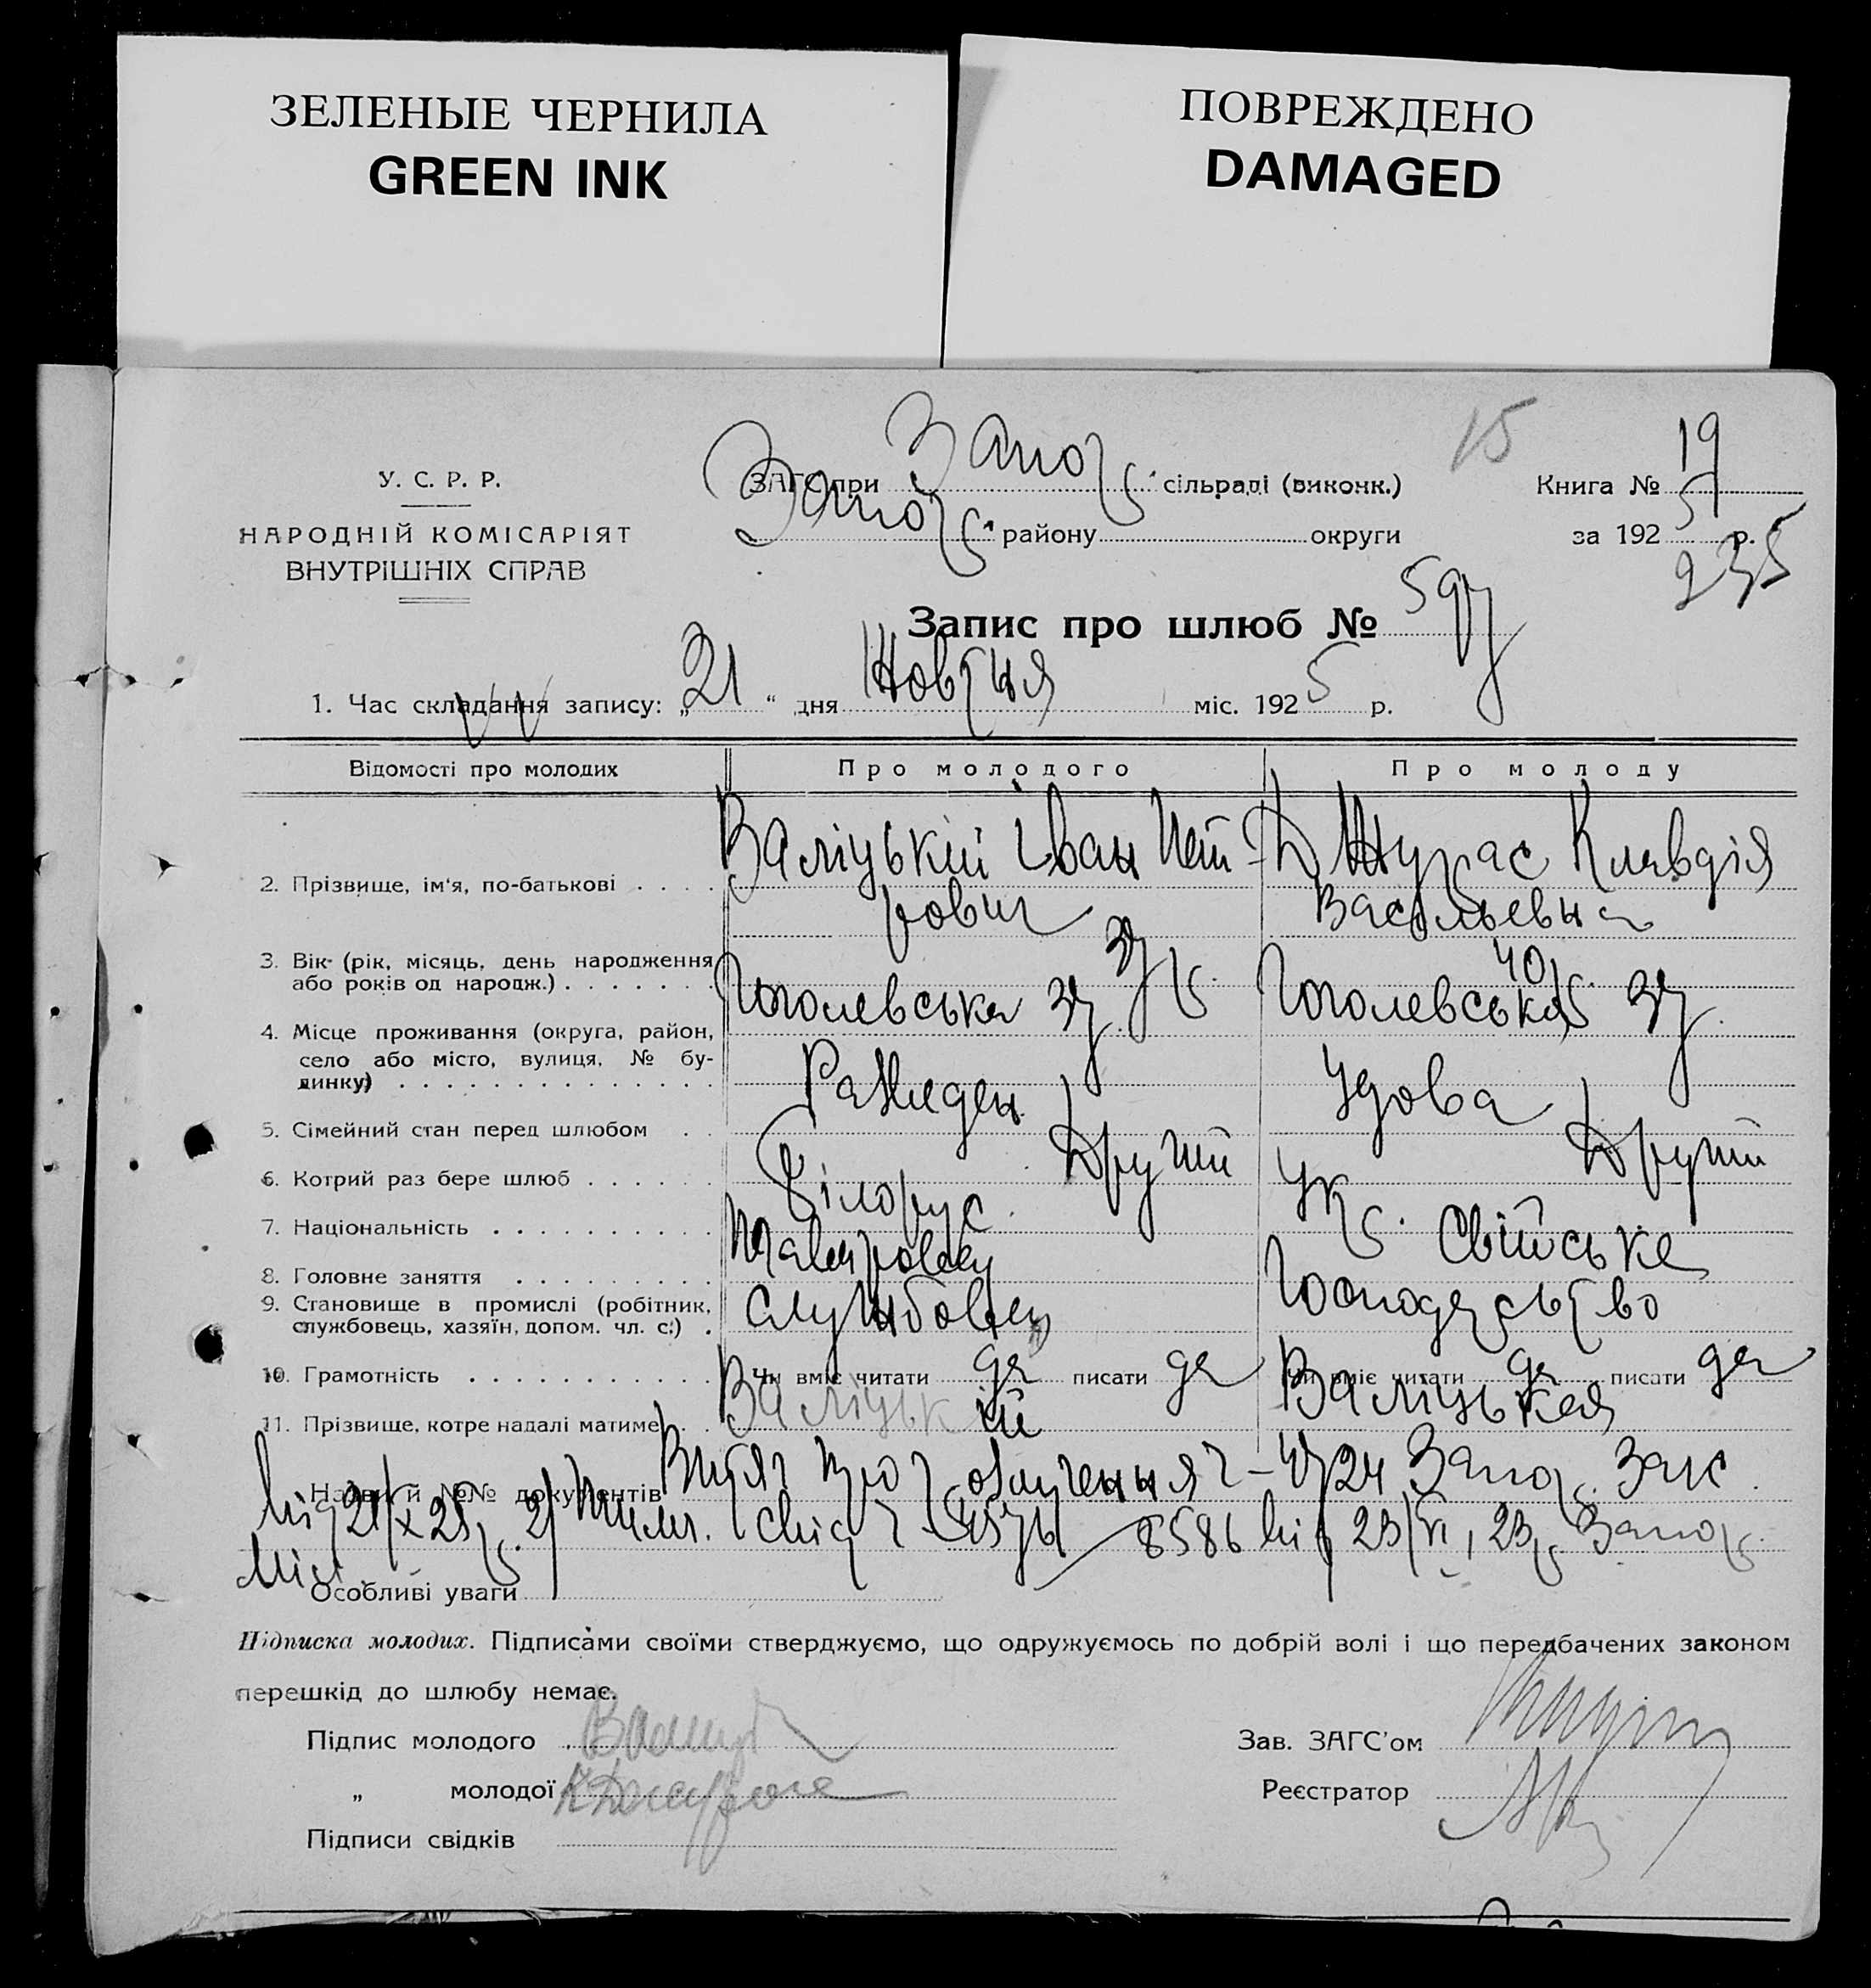 ЗЕЛЕНЫЕ ЧЕРНИЛА
GREEN INK
ПОВРЕЖДЕНО
DAMAGED
15
У. С. Р. Р.
НАРОДНІЙ КОМІСАРІЯТ
ВНУТРІШНІХ СПРАВ
ЗАГС при Запор. сільраді (виконк.)
Запор. району округи
Книга № 19
за 1925 р.
235
Запис про шлюб № 597
1. Час складання запису: „21“ дня Жовтня міс. 1925 р.
Відомості про молодих
Про молодого
Про молоду
2. Прізвище, ім'я, по-батькові
Валіцькій Іван Пет-
рович
Джурас Клавдія
Васильевна
3. Вік (рік, місяць, день народження
або років од народж.)
37 р.
40 р.
4. Місце проживання (округа, район,
село або місто, вулиця, № бу-
динку)
Гоголевська 37
Гоголевська 37
5. Сімейний стан перед шлюбом
Разведен
Удова
6. Котрий раз бере шлюб
Другий
Другий
7. Національність
Білорус
Укр.
8. Головне заняття
Свійське
9. Становище в промислі (робітник,
службовець, хазяїн, допом. чл. с.)
службовец
господарство
10. Грамотність
Чи вміє читати да писати да
Чи вміє читати да писати да
11. Прізвище, котре надалі матиме
Валіцькій
Валіцькая
Назви й №№ документів Витяг про 4724 Запор. Загс
від 21/X 25 р. 2) 8586 від 23/VI 23 р. Запор.
Міл.
Особливі уваги
Підписка молодих. Підписами своїми стверджуємо, що одружуємось по добрій волі і що передбачених законом
перешкід до шлюбу немає.
Підпис молодого
„ молодої КДжурас
Підписи свідків
Зав. ЗАГС'ом
Реєстратор